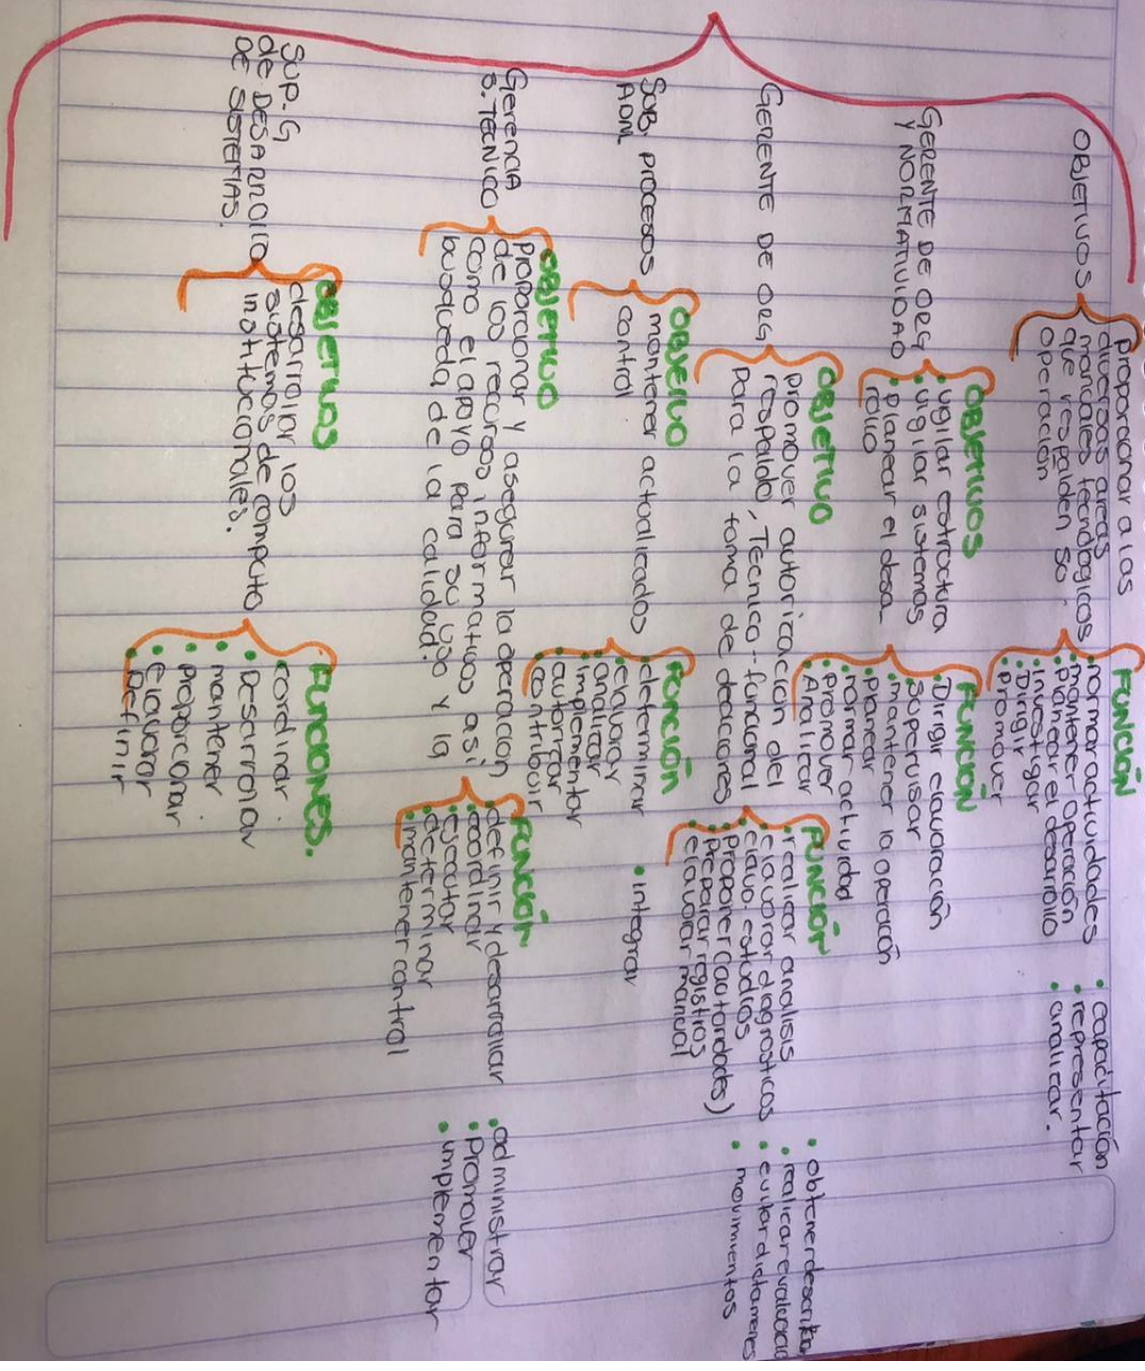 OBJETIVOS
proporcionar a las
diversas areas
manuales tecnologicos
que respalden su
operación
FUNCIÓN
normar actividades
mantener operación
planear el desarrollo
investigar
Dirigir
promover
capacitación
representar
analizar.
GERENTE DE ORG
Y NORMATIVIDAD
OBJETIVOS
vigilar estructura
vigilar sistemas
planear el desa
rollo
FUNCIÓN
Dirigir elavoración
supervisar
mantener la operación
planear
normar actividad
promover
Analizar
GERENTE DE ORG
OBJETIVO
promover autorización del
respaldo, Tecnico-funcional
para la toma de deaciores
FUNCIÓN
realizar analisis
elavorar diagnosticos
elavo. estudios
proponer (autoridades)
preparar registros
elavorar manual
obtener
realizar
evitar dictamenes
movimientos
SUB. PROCESOS
ADM
OBJETIVO
mantener actualizados
control
FUNCIÓN
determinar
elavorar
analizar
implementar
autorizar
contribuir
integrar
Gerencia
S. TECNICO
OBJETIVO
proporcionar y asegurar la operación
de los recursos informativos asi
como el apoyo para su uso y la
busqueda de la calidad.
FUNCIÓN
definir y desarrollar
coordinar
ejecutar
determinar
mantener control
administrar
promover
implementar
SUP. G
de DESARROLLO
DE SISTEMAS.
OBJETIVOS
desarrollar los
sistemas de computo
institucionales.
FUNCIONES.
cordinar.
Desarrollar
mantener
proporcionar
elavorar
Definir